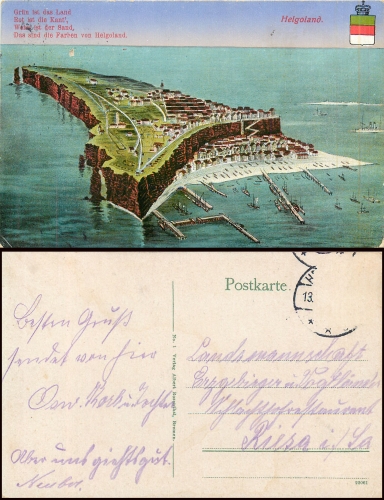 Grün ist das Land,
Rot ist die Kant',
Weiß ist der Sand,
Das sind die Farben von Helgoland.
Helgoland.
Postkarte.
13.
Besten Gruß
sendet von hier
Aber uns giehts gut.
No. 1 Verlag Albert Rosenthal, Bremen.
Landsmannschaft
Erzgebirger u. Vogtländer
Riesa i/Sa